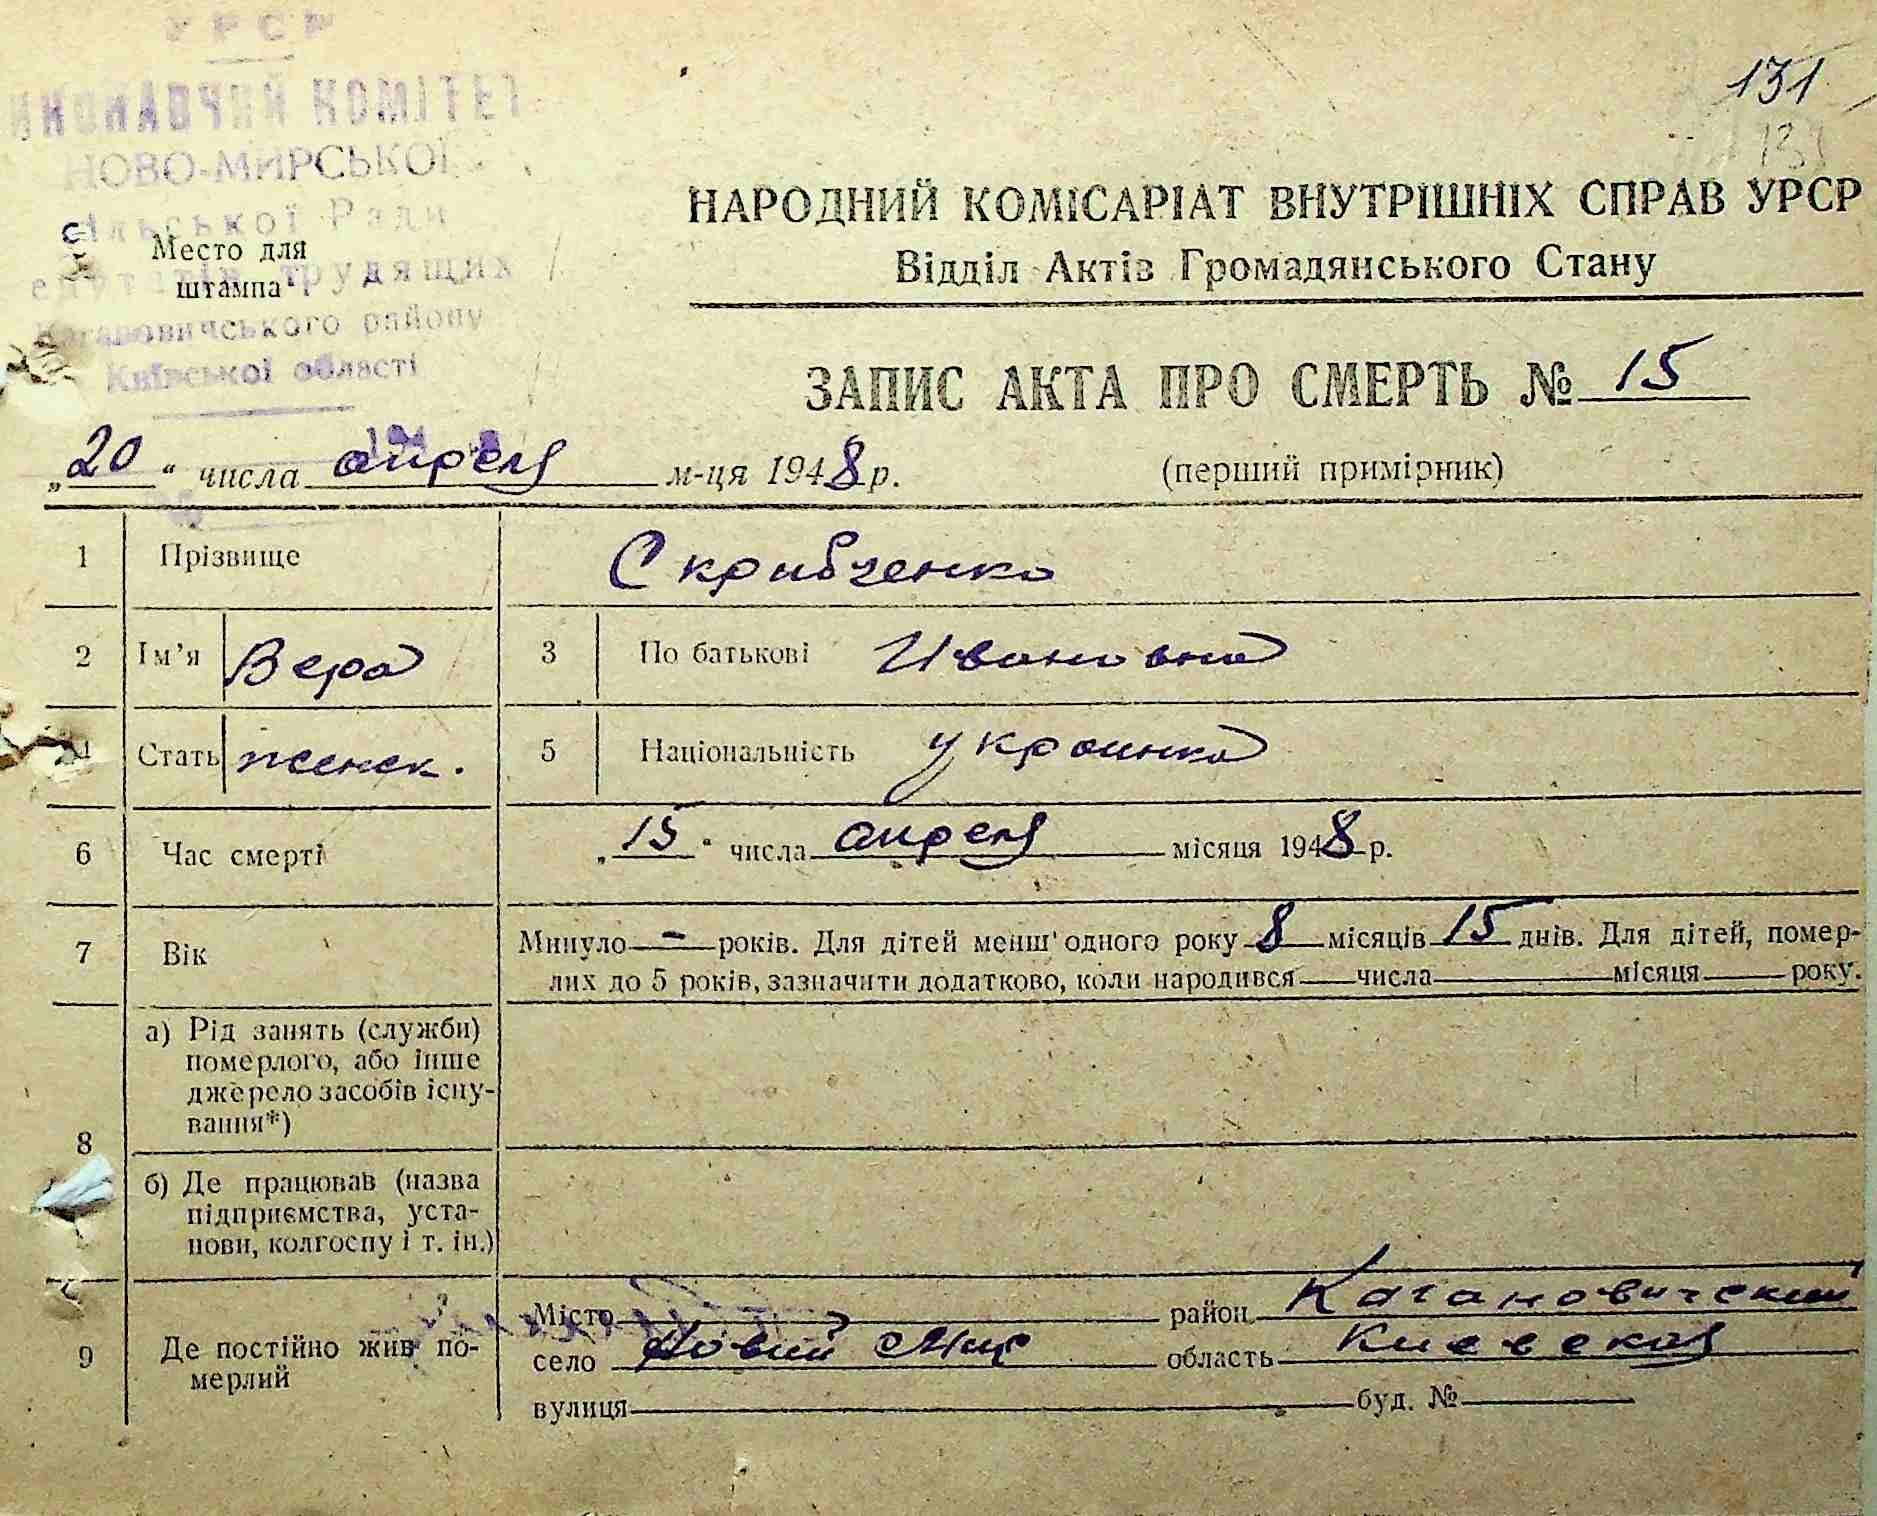 УРСР
КОМІТЕТ
НОВО-МИРСЬКОЇ
сільської Ради
трудящих
Кагановичського району
Київської області
Место для
штампа
131
НАРОДНИЙ КОМІСАРІАТ ВНУТРІШНІХ СПРАВ УРСР
Відділ Актів Громадянського Стану
ЗАПИС АКТА ПРО СМЕРТЬ № 15
„20“ числа апреля м-ця 1948 р. (перший примірник)
1 Прізвище Скрибченко
2 Ім’я Вера 3 По батькові Ивановна
4 Стать женск. 5 Національність украинка
6 Час смерті „15“ числа апреля місяця 1948 р.
7 Вік Минуло - років. Для дітей менш' одного року 8 місяців 15 днів. Для дітей, помер-
лих до 5 років, зазначити додатково, коли народився числа місяця року.
8 а) Рід занять (служби)
померлого, або інше
джерело засобів існу-
вання*)
б) Де працював (назва
підприємства, уста-
нови, колгоспу і т. ін.)
9 Де постійно жив по-
мерлий
Місто район Кагановичский
село Новий Мир область Киевская
вулиця буд. №